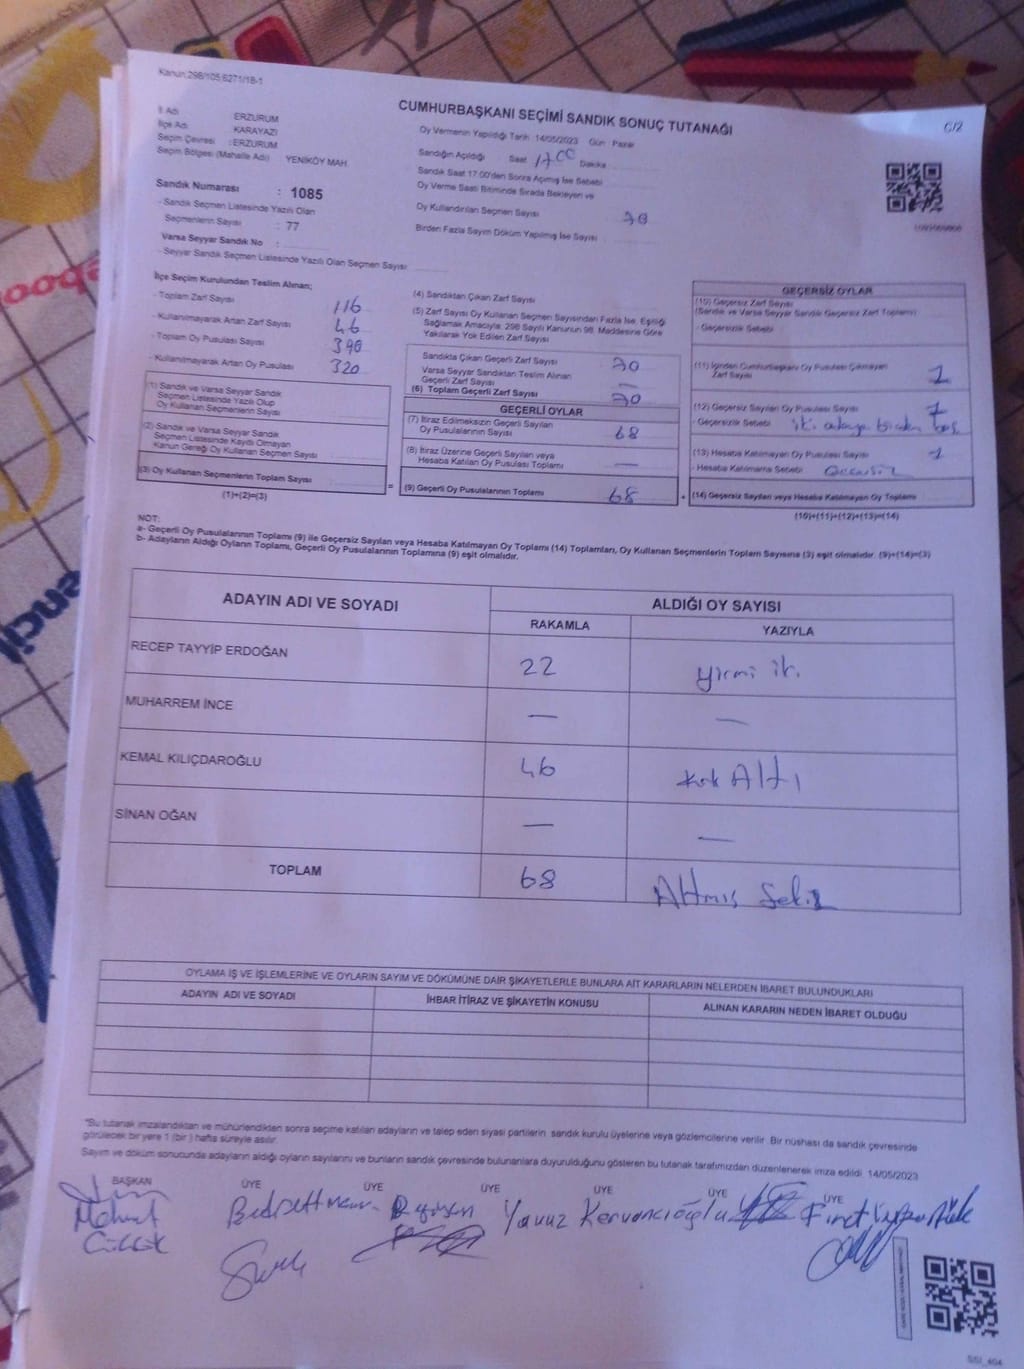 Kanun:298/105;6271/18-1
CUMHURBAŞKANI SEÇİMİ SANDIK SONUÇ TUTANAĞI
C/2
İl Adı : ERZURUM
İlçe Adı : KARAYAZI
Seçim Çevresi : ERZURUM
Seçim Bölgesi (Mahalle Adı) YENİKÖY MAH
Sandık Numarası : 1085
- Sandık Seçmen Listesinde Yazılı Olan
Seçmenlerin Sayısı : 77
Varsa Seyyar Sandık No :
- Seyyar Sandık Seçmen Listesinde Yazılı Olan Seçmen Sayısı
Oy Vermenin Yapıldığı Tarih 14/05/2023 Gün Pazar
Sandığın Açıldığı Saat 17 00 Dakika
Sandık Saat 17.00'den Sonra Açımış İse Sebebi
Oy Verme Saati Bitiminde Sırada Bekleyen ve
Oy Kullandırılan Seçmen Sayısı 70
Birden Fazla Sayım Döküm Yapılmış İse Sayısı
İlçe Seçim Kurulundan Teslim Alınan;
- Toplam Zarf Sayısı 116
- Kullanılmayarak Artan Zarf Sayısı 46
- Toplam Oy Pusulası Sayısı 390
- Kullanılmayarak Artan Oy Pusulası 320
(1) Sandık ve Varsa Seyyar Sandık
Seçmen Listesinde Yazılı Olup
Oy Kullanan Seçmenlerin Sayısı
(2) Sandık ve Varsa Seyyar Sandık
Seçmen Listesinde Kaydı Olmayan
Kanun Gereği Oy Kullanan Seçmen Sayısı
(3) Oy Kullanan Seçmenlerin Toplam Sayısı
(1)+(2)=(3)
(4) Sandıktan Çıkan Zarf Sayısı
(5) Zarf Sayısı Oy Kullanan Seçmen Sayısından Fazla İse, Eşitliği
Sağlamak Amacıyla, 298 Sayılı Kanunun 98. Maddesine Göre
Yakılarak Yok Edilen Zarf Sayısı
Sandıkta Çıkan Geçerli Zarf Sayısı 70
Varsa Seyyar Sandıktan Teslim Alınan
Geçerli Zarf Sayısı —
(6) Toplam Geçerli Zarf Sayısı 70
GEÇERLİ OYLAR
(7) İtiraz Edilmeksizin Geçerli Sayılan
Oy Pusulalarının Sayısı 68
(8) İtiraz Üzerine Geçerli Sayılan veya
Hesaba Katılan Oy Pusulası Toplamı —
= (9) Geçerli Oy Pusulalarının Toplamı 68 +
GEÇERSİZ OYLAR
(10) Geçersiz Zarf Sayısı
(Sandık ve Varsa Seyyar Sandık Geçersiz Zarf Toplamı)
- Geçersizlik Sebebi
(11) İçinden Cumhurbaşkanı Oy Pusulası Çıkmayan
Zarf Sayısı 1
(12) Geçersiz Sayılan Oy Pusulası Sayısı 1
- Geçersizlik Sebebi
(13) Hesaba Katılmayan Oy Pusulası Sayısı 1
- Hesaba Katılmama Sebebi Geçersiz
(14) Geçersiz Sayılan veya Hesaba Katılmayan Oy Toplamı
(10)+(11)+(12)+(13)=(14)
NOT:
a- Geçerli Oy Pusulalarının Toplamı (9) ile Geçersiz Sayılan veya Hesaba Katılmayan Oy Toplamı (14) Toplamları, Oy Kullanan Seçmenlerin Toplam Sayısına (3) eşit olmalıdır. (9)+(14)=(3)
b- Adayların Aldığı Oyların Toplamı, Geçerli Oy Pusulalarının Toplamına (9) eşit olmalıdır.
ADAYIN ADI VE SOYADI
ALDIĞI OY SAYISI
RAKAMLA YAZIYLA
RECEP TAYYİP ERDOĞAN 22 yirmi iki
MUHARREM İNCE — —
KEMAL KILIÇDAROĞLU 46 kırk Altı
SİNAN OĞAN — —
TOPLAM 68 Altmış Sekiz
OYLAMA İŞ VE İŞLEMLERİNE VE OYLARIN SAYIM VE DÖKÜMÜNE DAİR ŞİKAYETLERLE BUNLARA AİT KARARLARIN NELERDEN İBARET BULUNDUKLARI
ADAYIN ADI VE SOYADI İHBAR İTİRAZ VE ŞİKAYETİN KONUSU ALINAN KARARIN NEDEN İBARET OLDUĞU
"Bu tutanak imzalandıktan ve mühürlendikten sonra seçime katılan adayların ve talep eden siyasi partilerin sandık kurulu üyelerine veya gözlemcilerine verilir. Bir nüshası da sandık çevresinde
görülecek bir yere 1 (bir) hafta süreyle asılır.
Sayım ve döküm sonucunda adayların aldığı oyların sayılarını ve bunların sandık çevresinde bulunanlara duyurulduğunu gösteren bu tutanak tarafımızdan düzenlenerek imza edildi. 14/05/2023
BAŞKAN ÜYE ÜYE ÜYE ÜYE ÜYE ÜYE
Mehmet
Yavuz Kervancıoğlu
Fırat
SSI_404